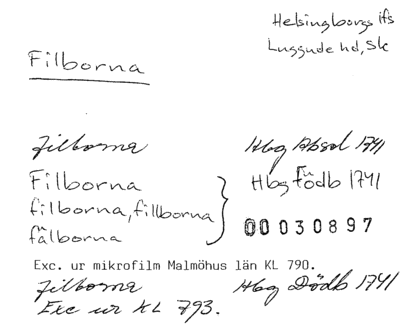 Helsingborgs ifs
Luggude hd, Sk
Filborna
Filborna Hbg Absol 1741
Filborna Hbg födb 1741
filborna, fillborna
fälborna
00030897
Exc. ur mikrofilm Malmöhus län KL 790.
Filborna Hbg Dödb 1741
Exc ur KL 793.